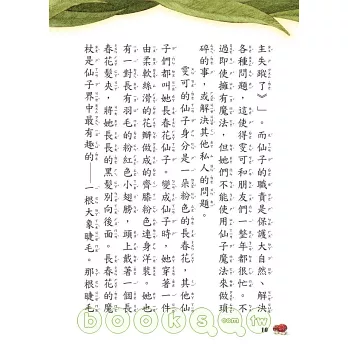 主失蹤了》」。而仙子的職責是保護大自然、解決
各種問題，這使得雯可和朋友們一整年都很忙。不
過即使擁有魔法，但她們不能使用仙子魔法來做瑣
碎的事，或解決其他私人的問題。
雯可的仙子身分是一朵粉色的長春花，其他仙
子們都叫她長春花仙子。變成仙子時，她穿著一件
由柔軟絲滑的花瓣做成的齊膝粉色連身洋裝。她也
有一對長有羽毛的粉紅色小翅膀，頭上戴著一個長
春花髮夾，將她長長的黑髮別向後面。長春花的魔
杖是仙子界中最有趣的——一根大象睫毛。那根睫毛
18
books.com.tw